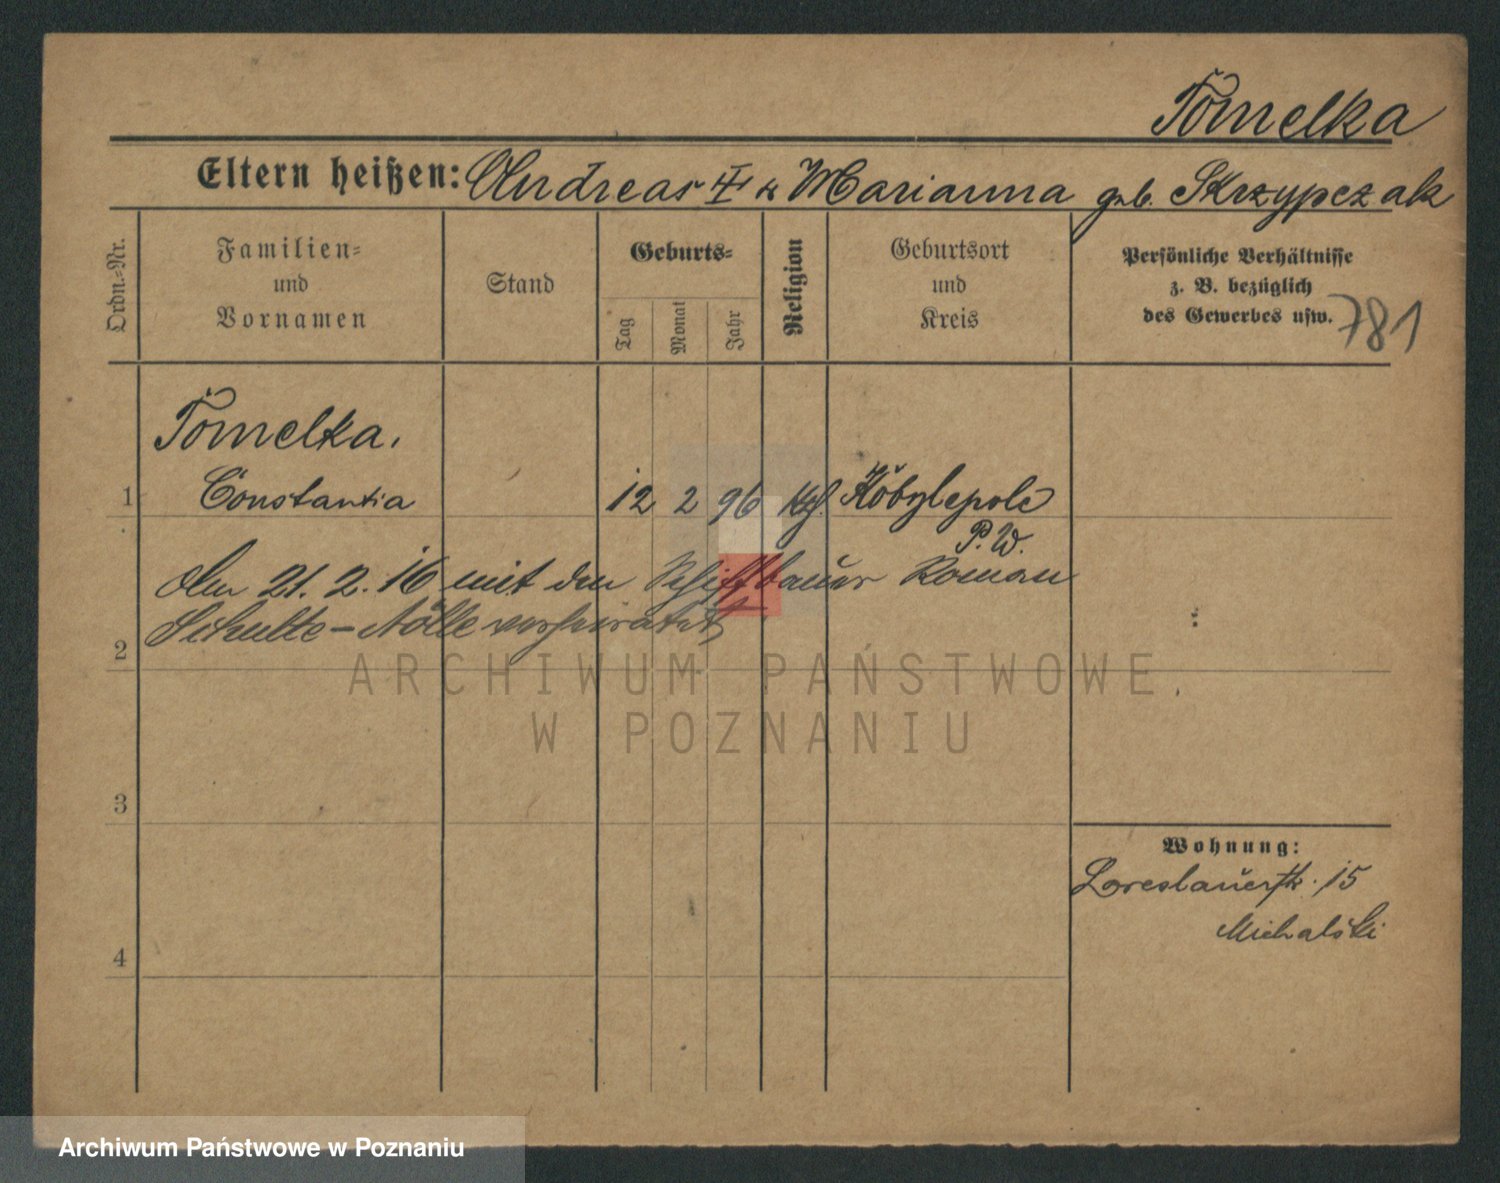 Tomelka
Eltern heißen: Andreas III u Marianna geb. Skrzypczak
Ordn.-Nr.
Familien-
und
Vornamen
Stand
Geburts-
Tag
Monat
Jahr
Religion
Geburtsort
und
Kreis
Persönliche Verhältnisse
z. B. bezüglich
des Gewerbes usw.
781
Tomelka.
1 Constantia 12 2 96 kth. Kobylepole
P. W.
Am 21. 2. 16 mit dem Schiffbauer Roman
Schulte-Nölle verheiratet
2
3
4
Wohnung:
15
Michalski
ARCHIWUM PAŃSTWOWE
W POZNANIU
Archiwum Państwowe w Poznaniu